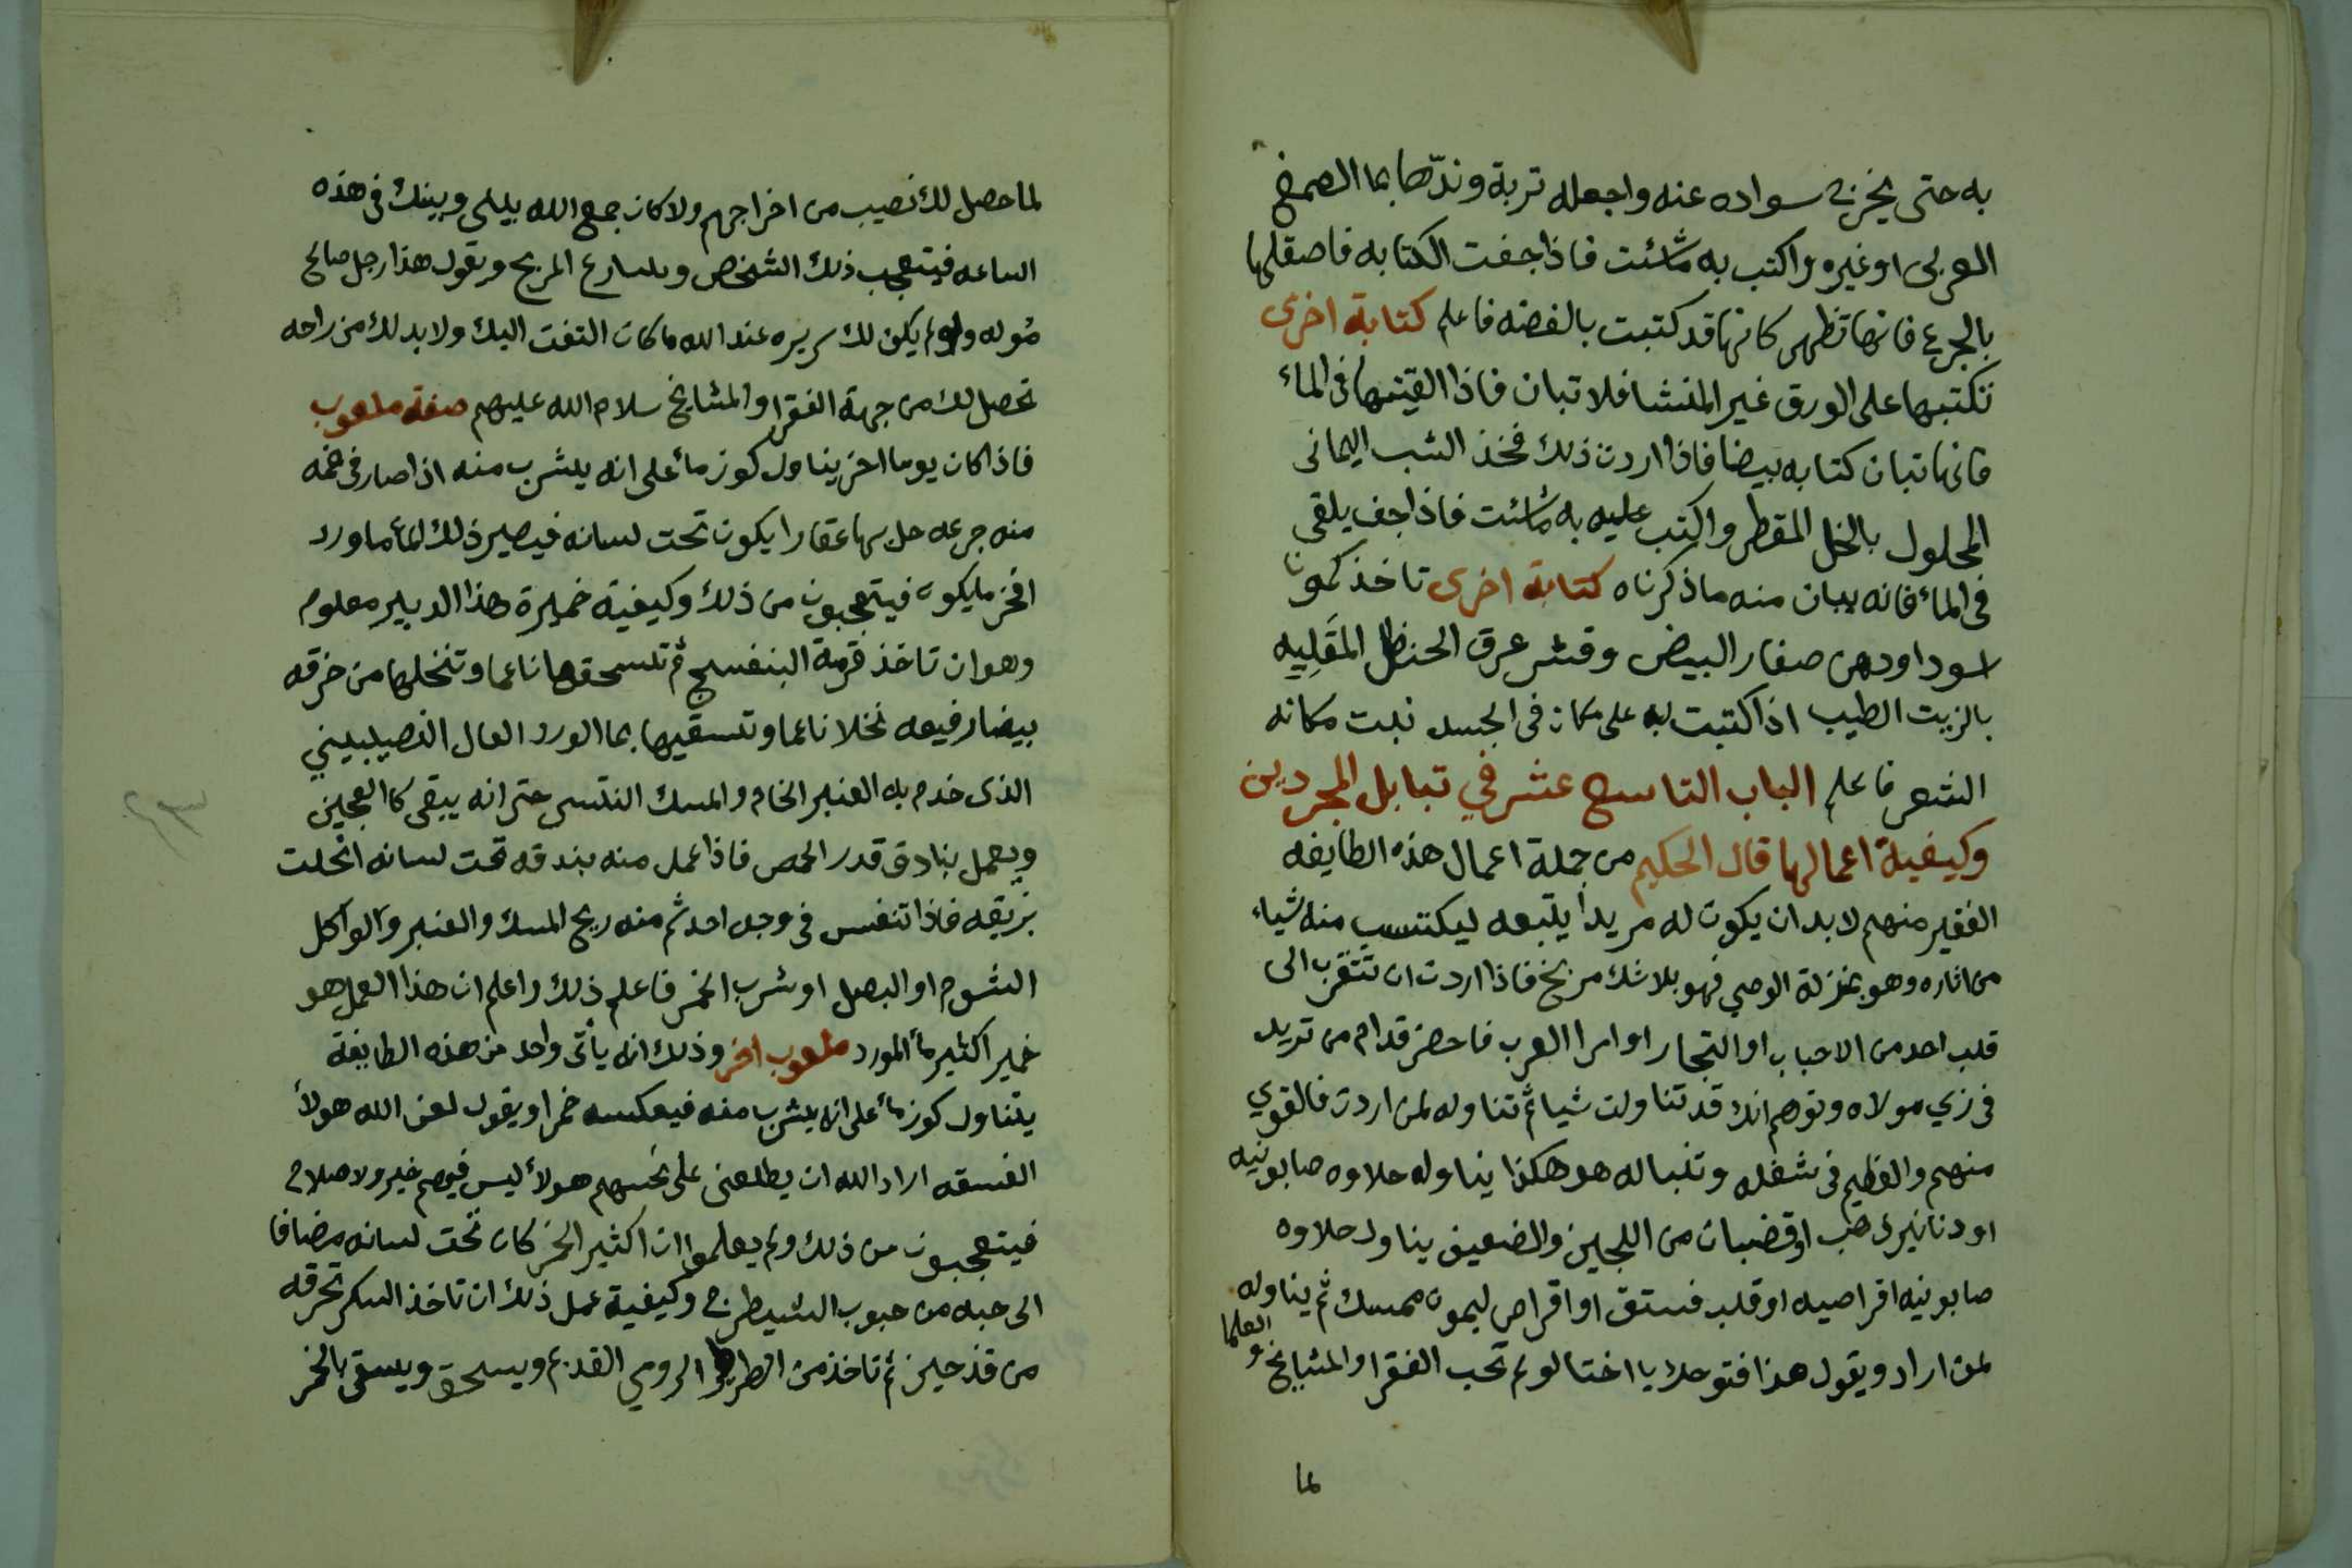 به حتى يخرج سواده عنه واجعله تربة وندّها بما الصمغ
العربى او غيره واكتب به ما شئت فاذا جفت الكتابه فاصقلها
بالجزع فانها تظهر كانها قد كتبت بالفضه فاعلم كتابة اخرى
تكتبها على الورق غير المنشا فلا تبان فاذا القيتها فى الماء
فانها تبان كتابه بيضا فاذا اردت ذلك فخذ الشب اليمانى
المحلول بالخل المقطر واكتب عليه به ما شئت فاذا جف يلقى
فى الماء فانه يبان منه ما ذكرناه كتابة اخرى تاخذ كمونا
اسودا ودهن صفار البيض وقشر عرق الحنظل المقَلِيه
بالزيت الطيب اذا كتبت به على مكان فى الجسد نبت مكانه
الشعر فاعلم الباب التاسع عشر في تبابل المجردين
وكيفية اعمالها قال الحكيم من جملة اعمال هذه الطايفه
الفقير منهم لا بد ان يكون له مريداً يتبعه ليكتسب منه شياء
من اثاره وهو بمنزلة الوصي فهو بلا شك مريخ فاذا اردت ان تتقرب الى
قلب احد من الاحباب او التجار او امرا العرب فاحضر قدام من تريد
فى زي مولاه وتوهم انك قد تناولت شيا ثم تناوله لمن اردت فالقوي
منهم والعظيم فى شغله وتنباله هو هكذا يناوله حلاوه صابونيه
او دنانير ذهب او قضبان من اللجين والضعيف يناوله حلاوه
صابونيه اقراصيه او قلب فستق او اقراص ليمون ممسك ثم يناوله
لمن اراد ويقول هذا فتوحك يا اختا لو لم تحب الفقرا والمشايخ و العلما
لما
لما حصل لك نصيب من اخراجهم ولا كان جمع الله بينى وبينك فى هذه
الساعه فيتعجب ذلك الشخص ويسارع المريح ويقول هذا رجل صالح
مُوله ولو لم يكن لك سريره عند الله ما كان التفت اليك ولا بد لك من راحه
تحصل لك من جهة الفقرا والمشايخ سلام الله عليهم صفة ملعوب
فاذا كان يوما اخر يناول كوز مأ على انه يشرب منه اذا صار فى فمه
منه جرعه حل بها عقارا يكون تحت لسانه فيصير ذلك المأ ماورد
افخر ما يكون فيتعجبون من ذلك وكيفية خميرة هذا الدبير معلوم
وهو ان تاخذ قرمة البنفسج ثم تسحقها ناعما وتنخلها من خرقه
بيضا رفيعه نخلا ناعما وتسقيها بما الورد العال النصيبينى
الذى خدم به العنبر الخام والمسك التبتى حتى انه يبقى كالعجين
ويعمل بنادق قدر الحمص فاذا عمل منه بندقه تحت لسانه انحلت
بريقه فاذا تنفس فى وجه احد شم منه ريح المسك والعنبر ولو اكل
الثوم او البصل او شرب الخمر فاعلم ذلك واعلم ان هذا العمل هو
خمير اكثير مأ المورد ملعوب اخر وذلك انه يأتى واحد من هذه الطايفة
يتناول كوز مأ على انه يشرب منه فيعكسه خمرا ويقول لعن الله هولأ
الفسقه اراد الله ان يطلعنى على نحسهم هولأ ليس فيهم خير ولا صلاح
فيتعجبون من ذلك ولم يعلموا ان اكثير الخمر كان تحت لسانه مضافا
الى حبه من حبوب الشيطرج وكيفية عمل ذلك ان تاخذ السكر تحرقه
من قدحين ثم تاخذ من الطريا الرومي القديم ويسحق ويسقى بالخمر